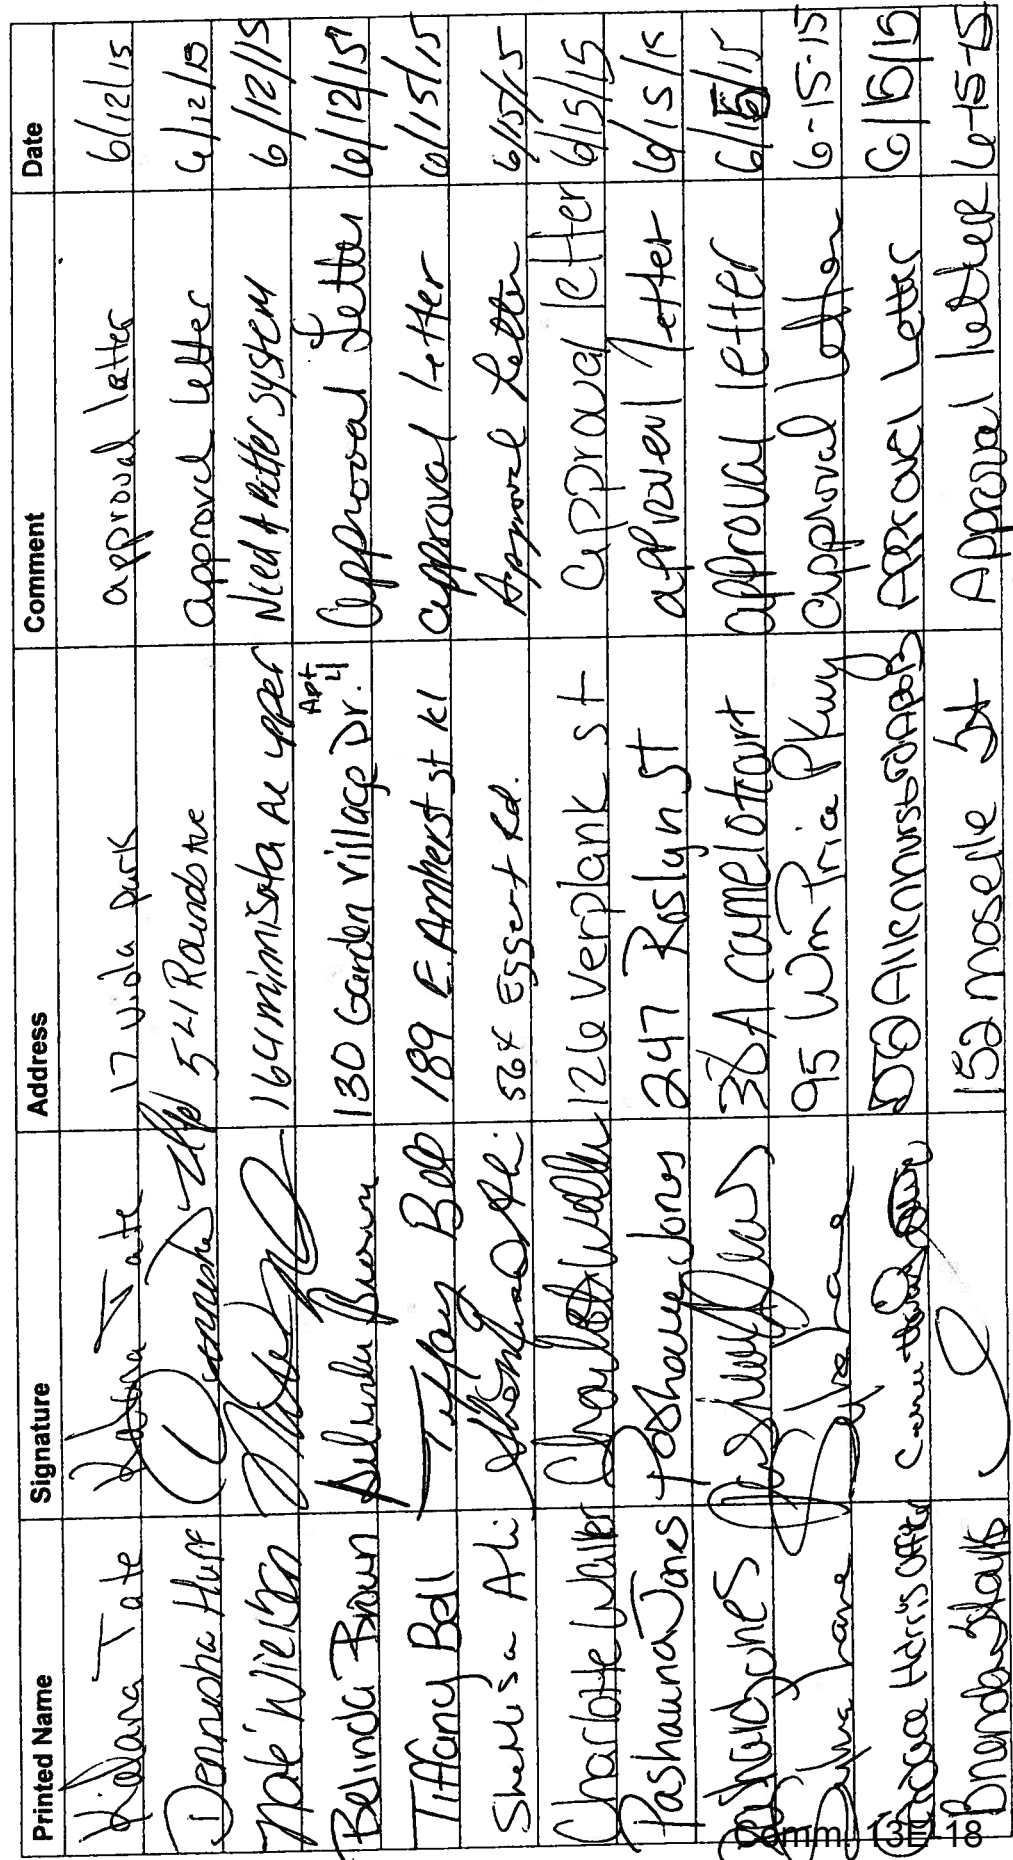 Printed Name Signature Address Comment Date
Kilana Tate Kilana Tate 17 Viola Park approval letter 6/12/15
Dennisha Huff Dennisha Huff 541 Rounds Ave approvel letter 6/12/15
164 minnisota Ave upper Need A Better system 6/12/15
Belinda Brown Belinda Brown 130 Garden Village Dr. Apt 4 Approval Letter 6/12/15
Tiffany Bell Tiffany Bell 189 E. Amherst st k1 approval letter 6/15/15
Shenesa Ali 564 Eggert Rd. Approval Letter 6/15/15
Charlotte Walker Charlotte Walker 126 verplank st approval letter 6/15/15
Pashauna Jones Pashauna Jones 247 Roslyn st approvel letter 6/15/15
38A camelot court approval letter 6/15/15
95 Wm Price Pkwy approval Letter 6-15-15
Allenhurst Rd Apt B Approvel Letter 6/15/15
Brenda 152 moselle St Approval letter 6-15-15
Comm. 13E-18